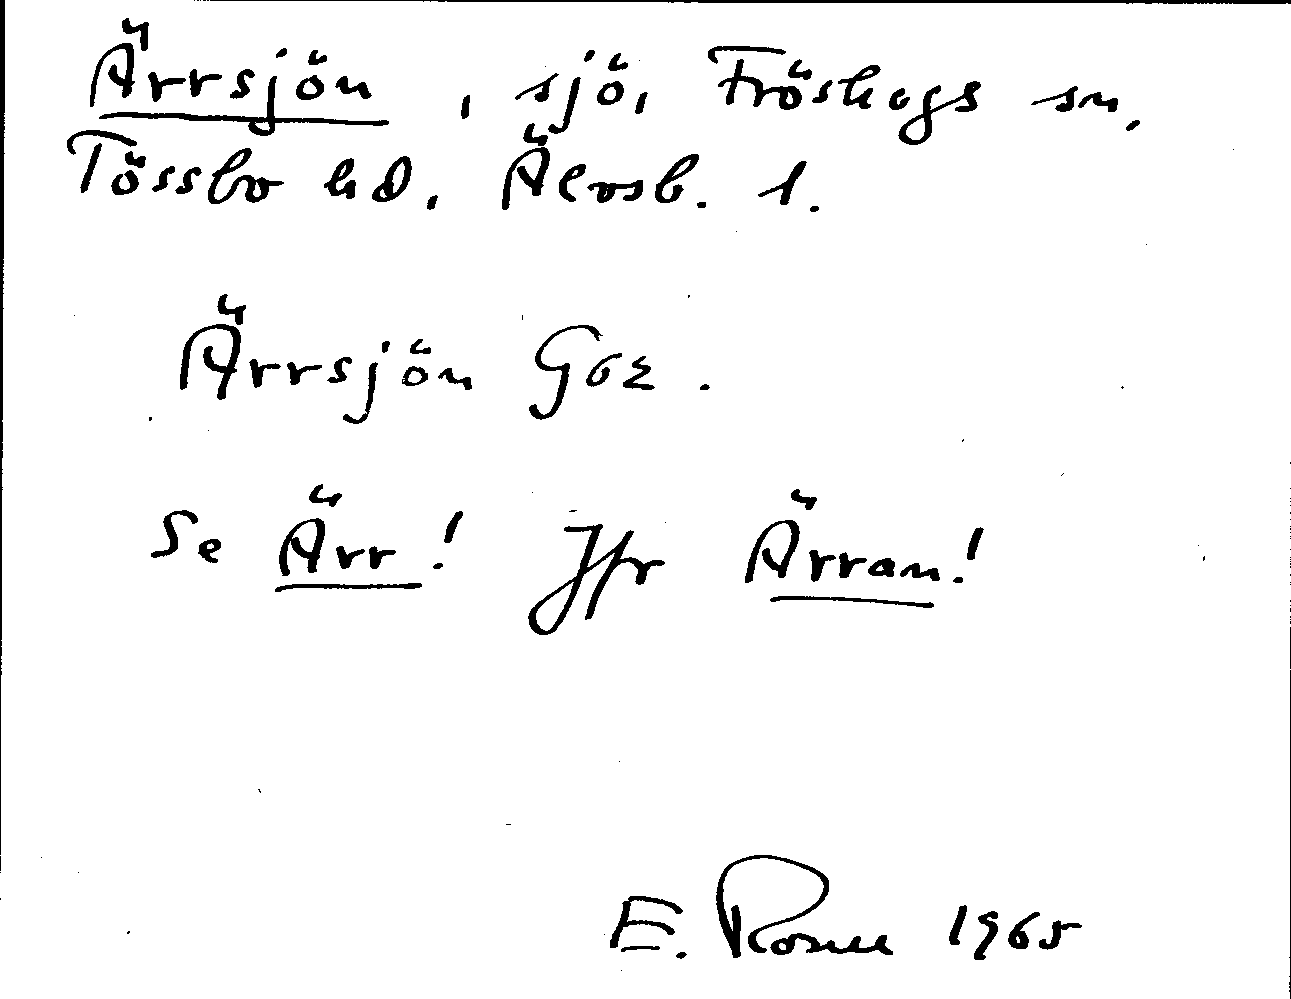 Ärrsjön, sjö, Fröskogs sn,
Tössbo hd, Älvsb. l.
Ärrsjön GGE.
Se Ärr! Jfr Ärran!
E. 1965